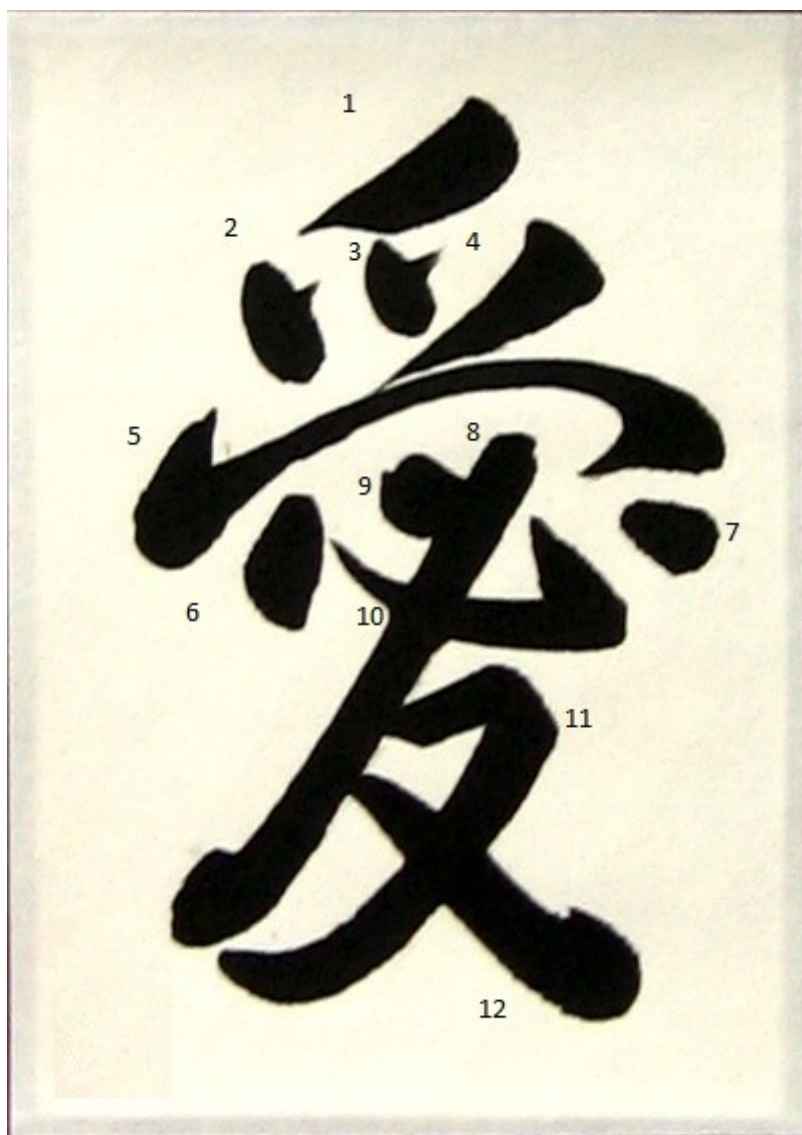 愛
1
2
3
4
5
6
7
8
9
10
11
12